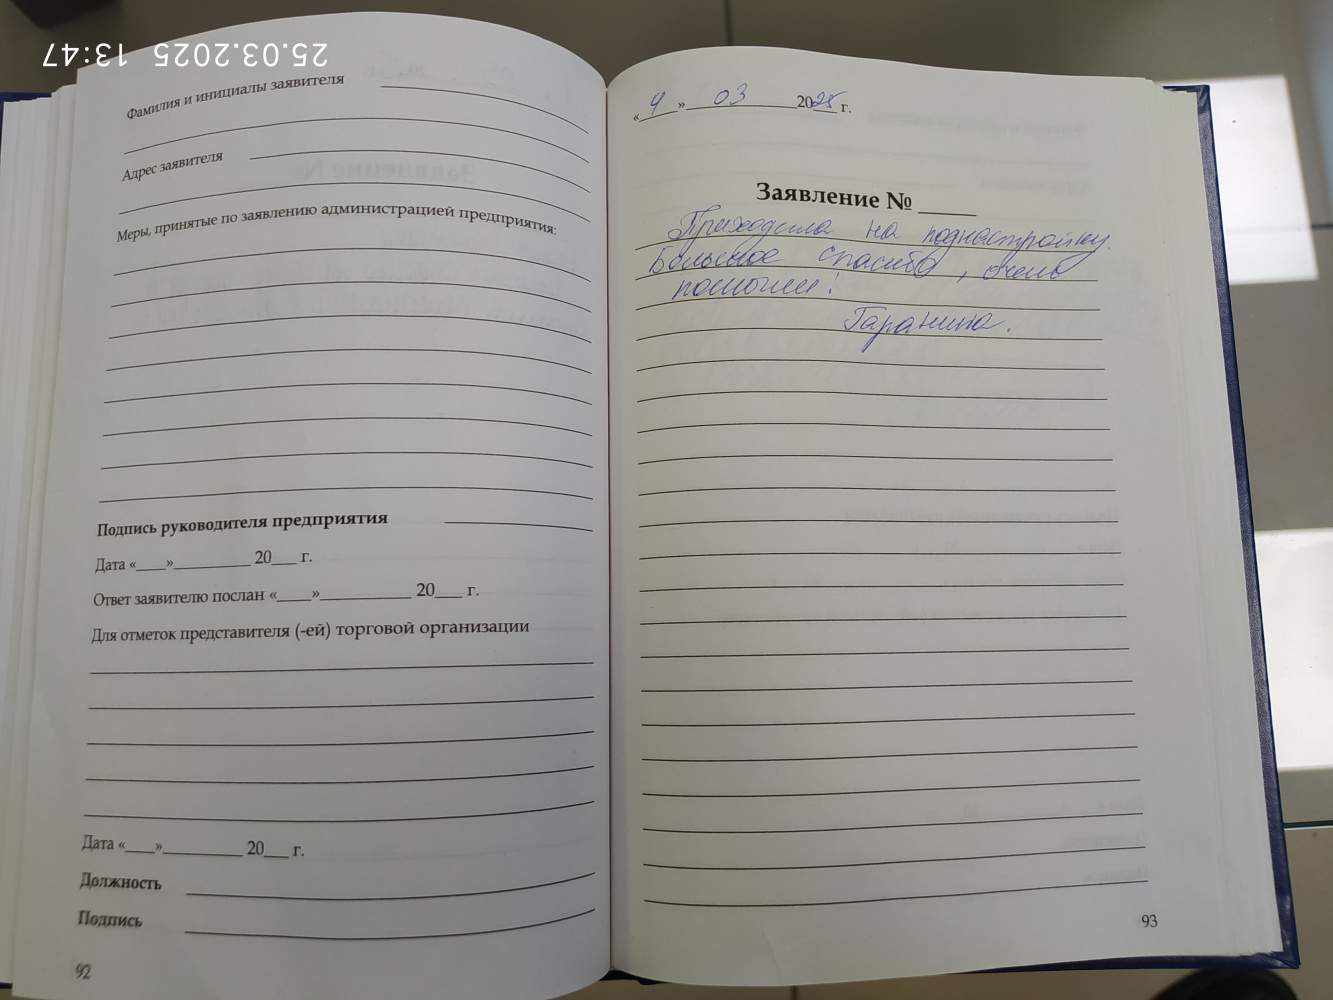 25.03.2025 13:47
Фамилия и инициалы заявителя
Адрес заявителя
Меры, принятые по заявлению администрацией предприятия:
Подпись руководителя предприятия
Дата «____»__________ 20___ г.
Ответ заявителю послан «____»___________ 20___ г.
Для отметок представителя (-ей) торговой организации
Дата «____»__________ 20___ г.
Должность
Подпись
92
«4» 03 2025 г.
Заявление № _____
Приходила на поднастройку.
Большое спасибо, очень
помогли!
Гаранина.
93